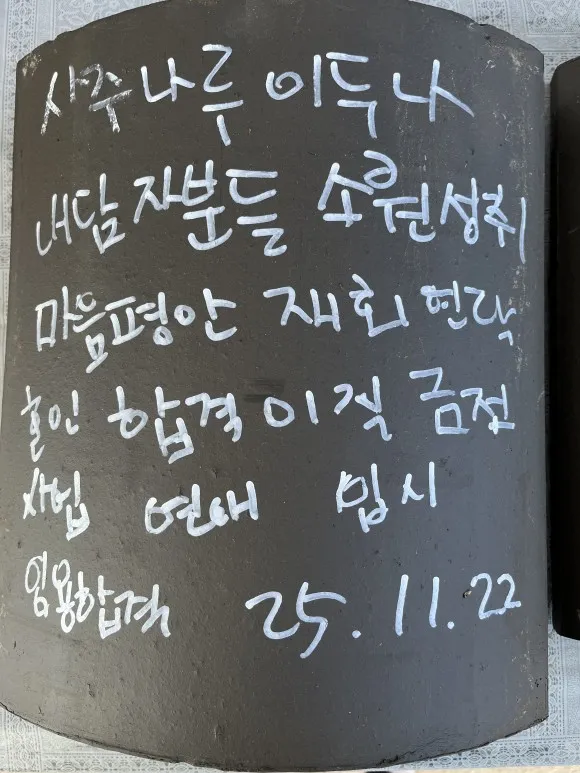 사주나루 이두나
내담자분들 소원성취
마음평안 재회 연락
혼인 합격 이직 금전
사업 연애 입시
임용합격 25.11.22